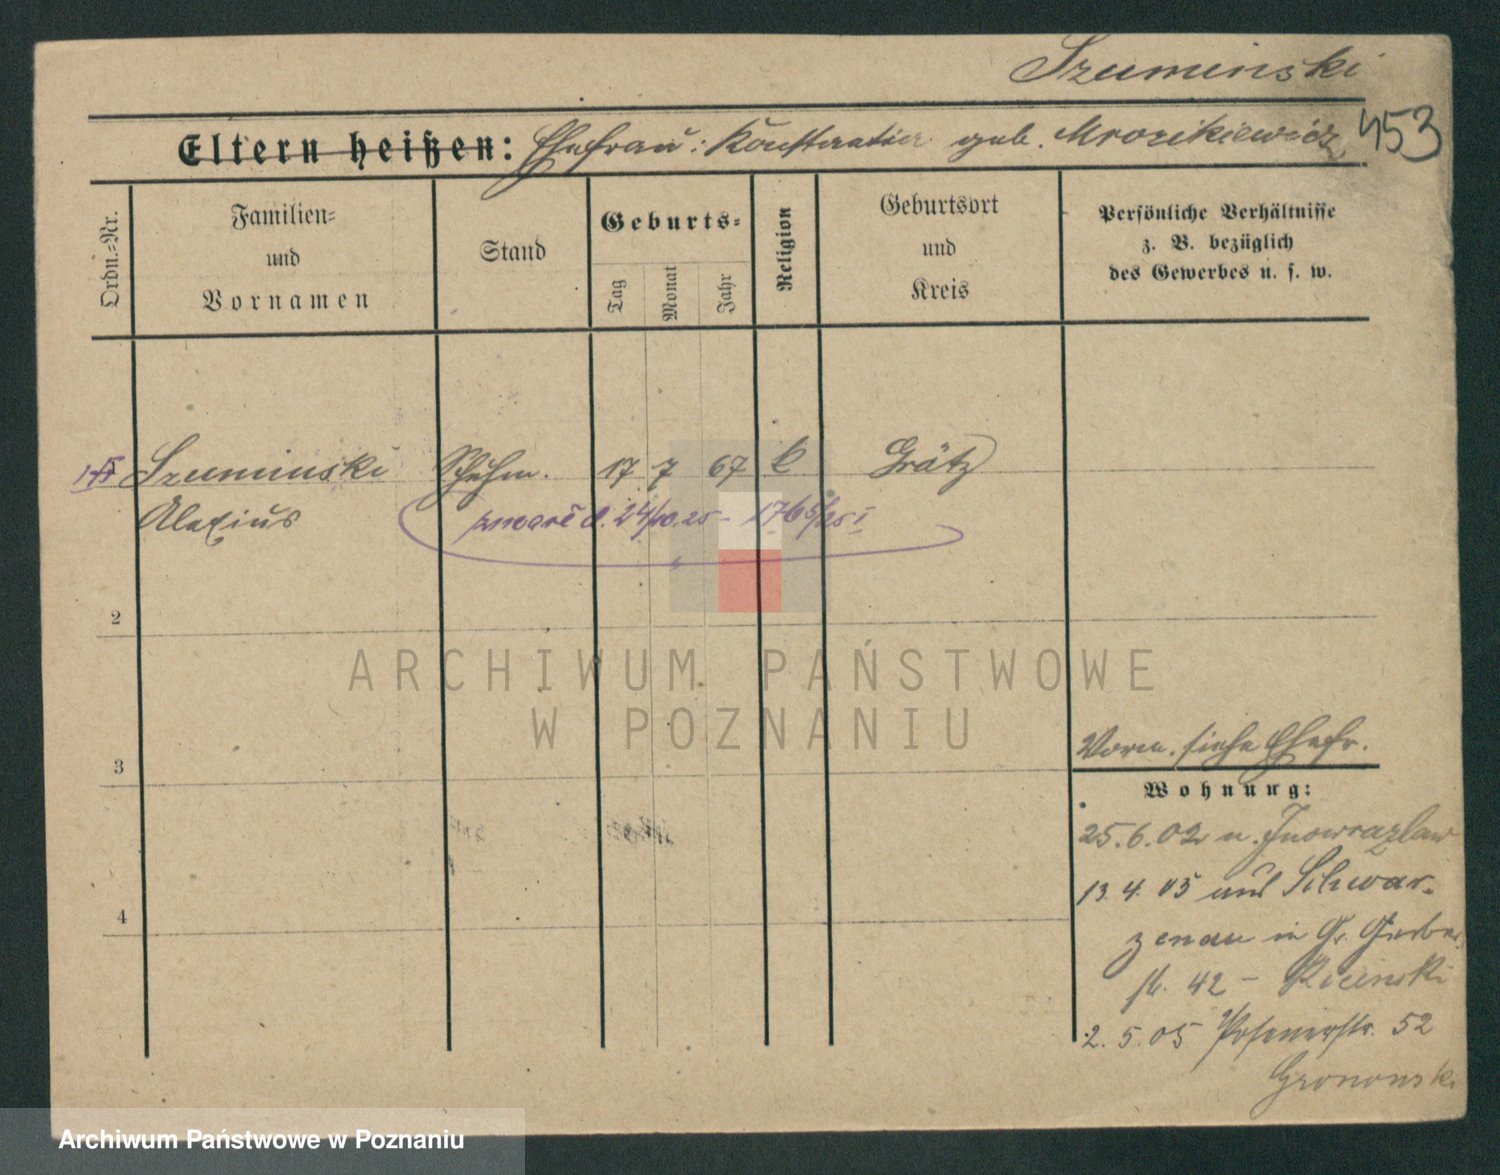 Szuminski
453
Eltern heißen: Ehefrau: Konstantia geb. Mrozikiewicz
Ordn.-Nr.
Familien-
und
Vornamen
Stand
Geburts-
Tag
Monat
Jahr
Religion
Geburtsort
und
Kreis
Persönliche Verhältnisse
z. B. bezüglich
des Gewerbes u. s. w.
Szuminski Schuhm. 17 7 67 k Grätz
Alexius
zmarł d. 24/10.25 - 1765/25 I
2
ARCHIWUM PAŃSTWOWE
W POZNANIU
3
Vorm. siehe Ehefr.
Wohnung:
25.6.02 n. Inowrazlaw
13.4.05 aus Schwar-
zenau in Gr. Gerber
str. 42 - Kicinski
2.5.05 Posenerstr. 52
Gronowski
4
Archiwum Państwowe w Poznaniu